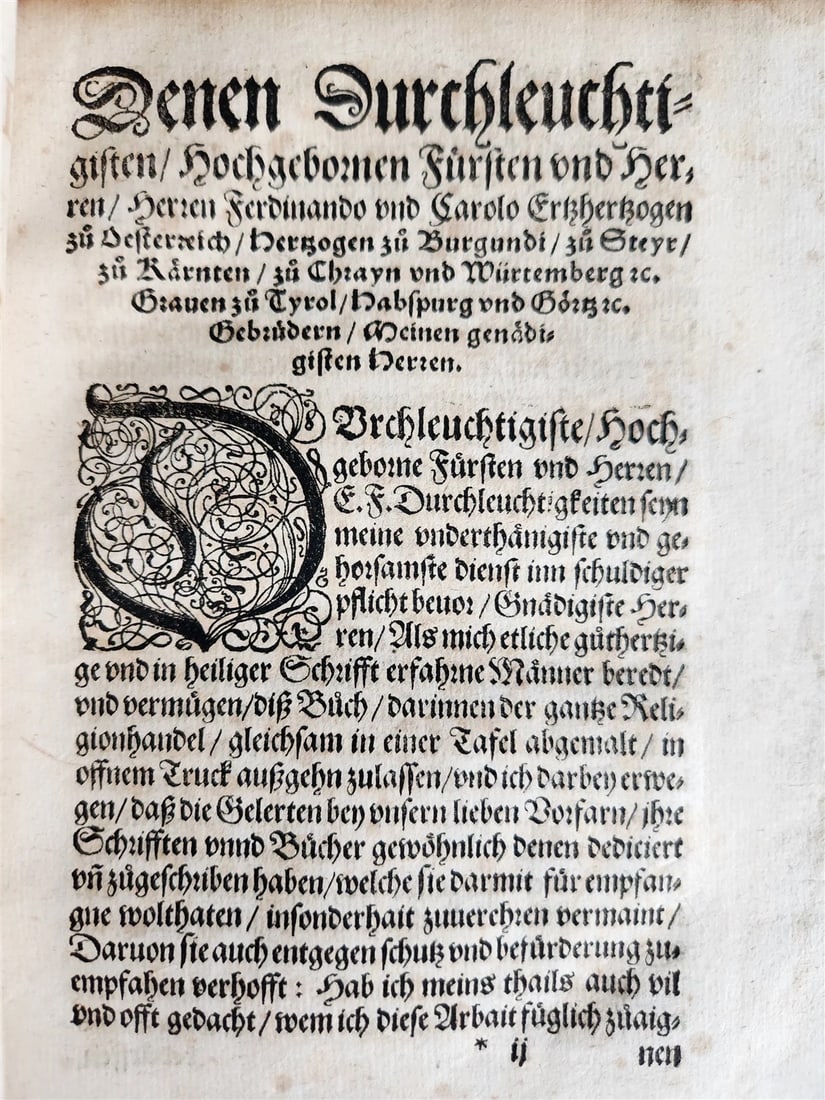 Denen Durchleuchti⸗
gisten/ Hochgebornen Fürsten vnd Her⸗
ren/ Herren Ferdinando vnd Carolo Ertzhertzogen
zů Oesterreich/ Hertzogen zů Burgundi/ zů Steyr/
zů Kärnten/ zů Chrayn vnd Würtemberg ꝛc.
Grauen zů Tyrol/ Habspurg vnd Görtz ꝛc.
Gebrüdern/ Meinen genädi⸗
gisten Herren.
DVrchleuchtigiste/ Hoch⸗
geborne Fürsten vnd Herren/
E. F. Durchleuchtigkeiten seyn
meine vnderthänigiste vnd ge⸗
horsamste dienst inn schuldiger
pflicht beuor/ Gnädigiste Her⸗
ren/ Als mich etliche gůthertzi⸗
ge vnd in heiliger Schrifft erfahrne Männer beredt/
vnd vermügen/ diß Bůch/ darinnen der gantze Reli⸗
gionhandel/ gleichsam in einer Tafel abgemalt/ in
offnem Truck außgehn zulassen/ vnd ich darbey erwe⸗
gen/ daß die Gelerten bey vnsern lieben Vorfarn/ jhre
Schrifften vnnd Bücher gewöhnlich denen dediciert
vñ zůgeschriben haben/ welche sie darmit für empfan⸗
gne wolthaten/ insonderhait zuuerehren vermaint/
Daruon sie auch entgegen schutz vnd befürderung zu⸗
empfahen verhofft: Hab ich meins thails auch vil
vnd offt gedacht/ wem ich diese Arbait füglich zůaig⸗
* ij nen